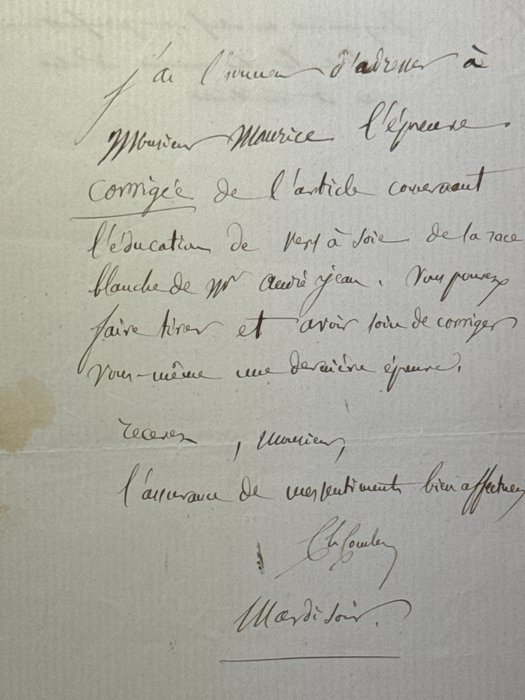 J'ai l'honneur d'adresser à
Monsieur Maurice l'épreuve
corrigée de l'article concernant
l'éducation de vers à soie de la race
blanche de Mr André Jean. Vous pouvez
faire tirer et avoir soin de corriger
vous-même une dernière épreuve.
recevez, Monsieur,
l'assurance de mes sentiments bien affectueux
Mardi soir.